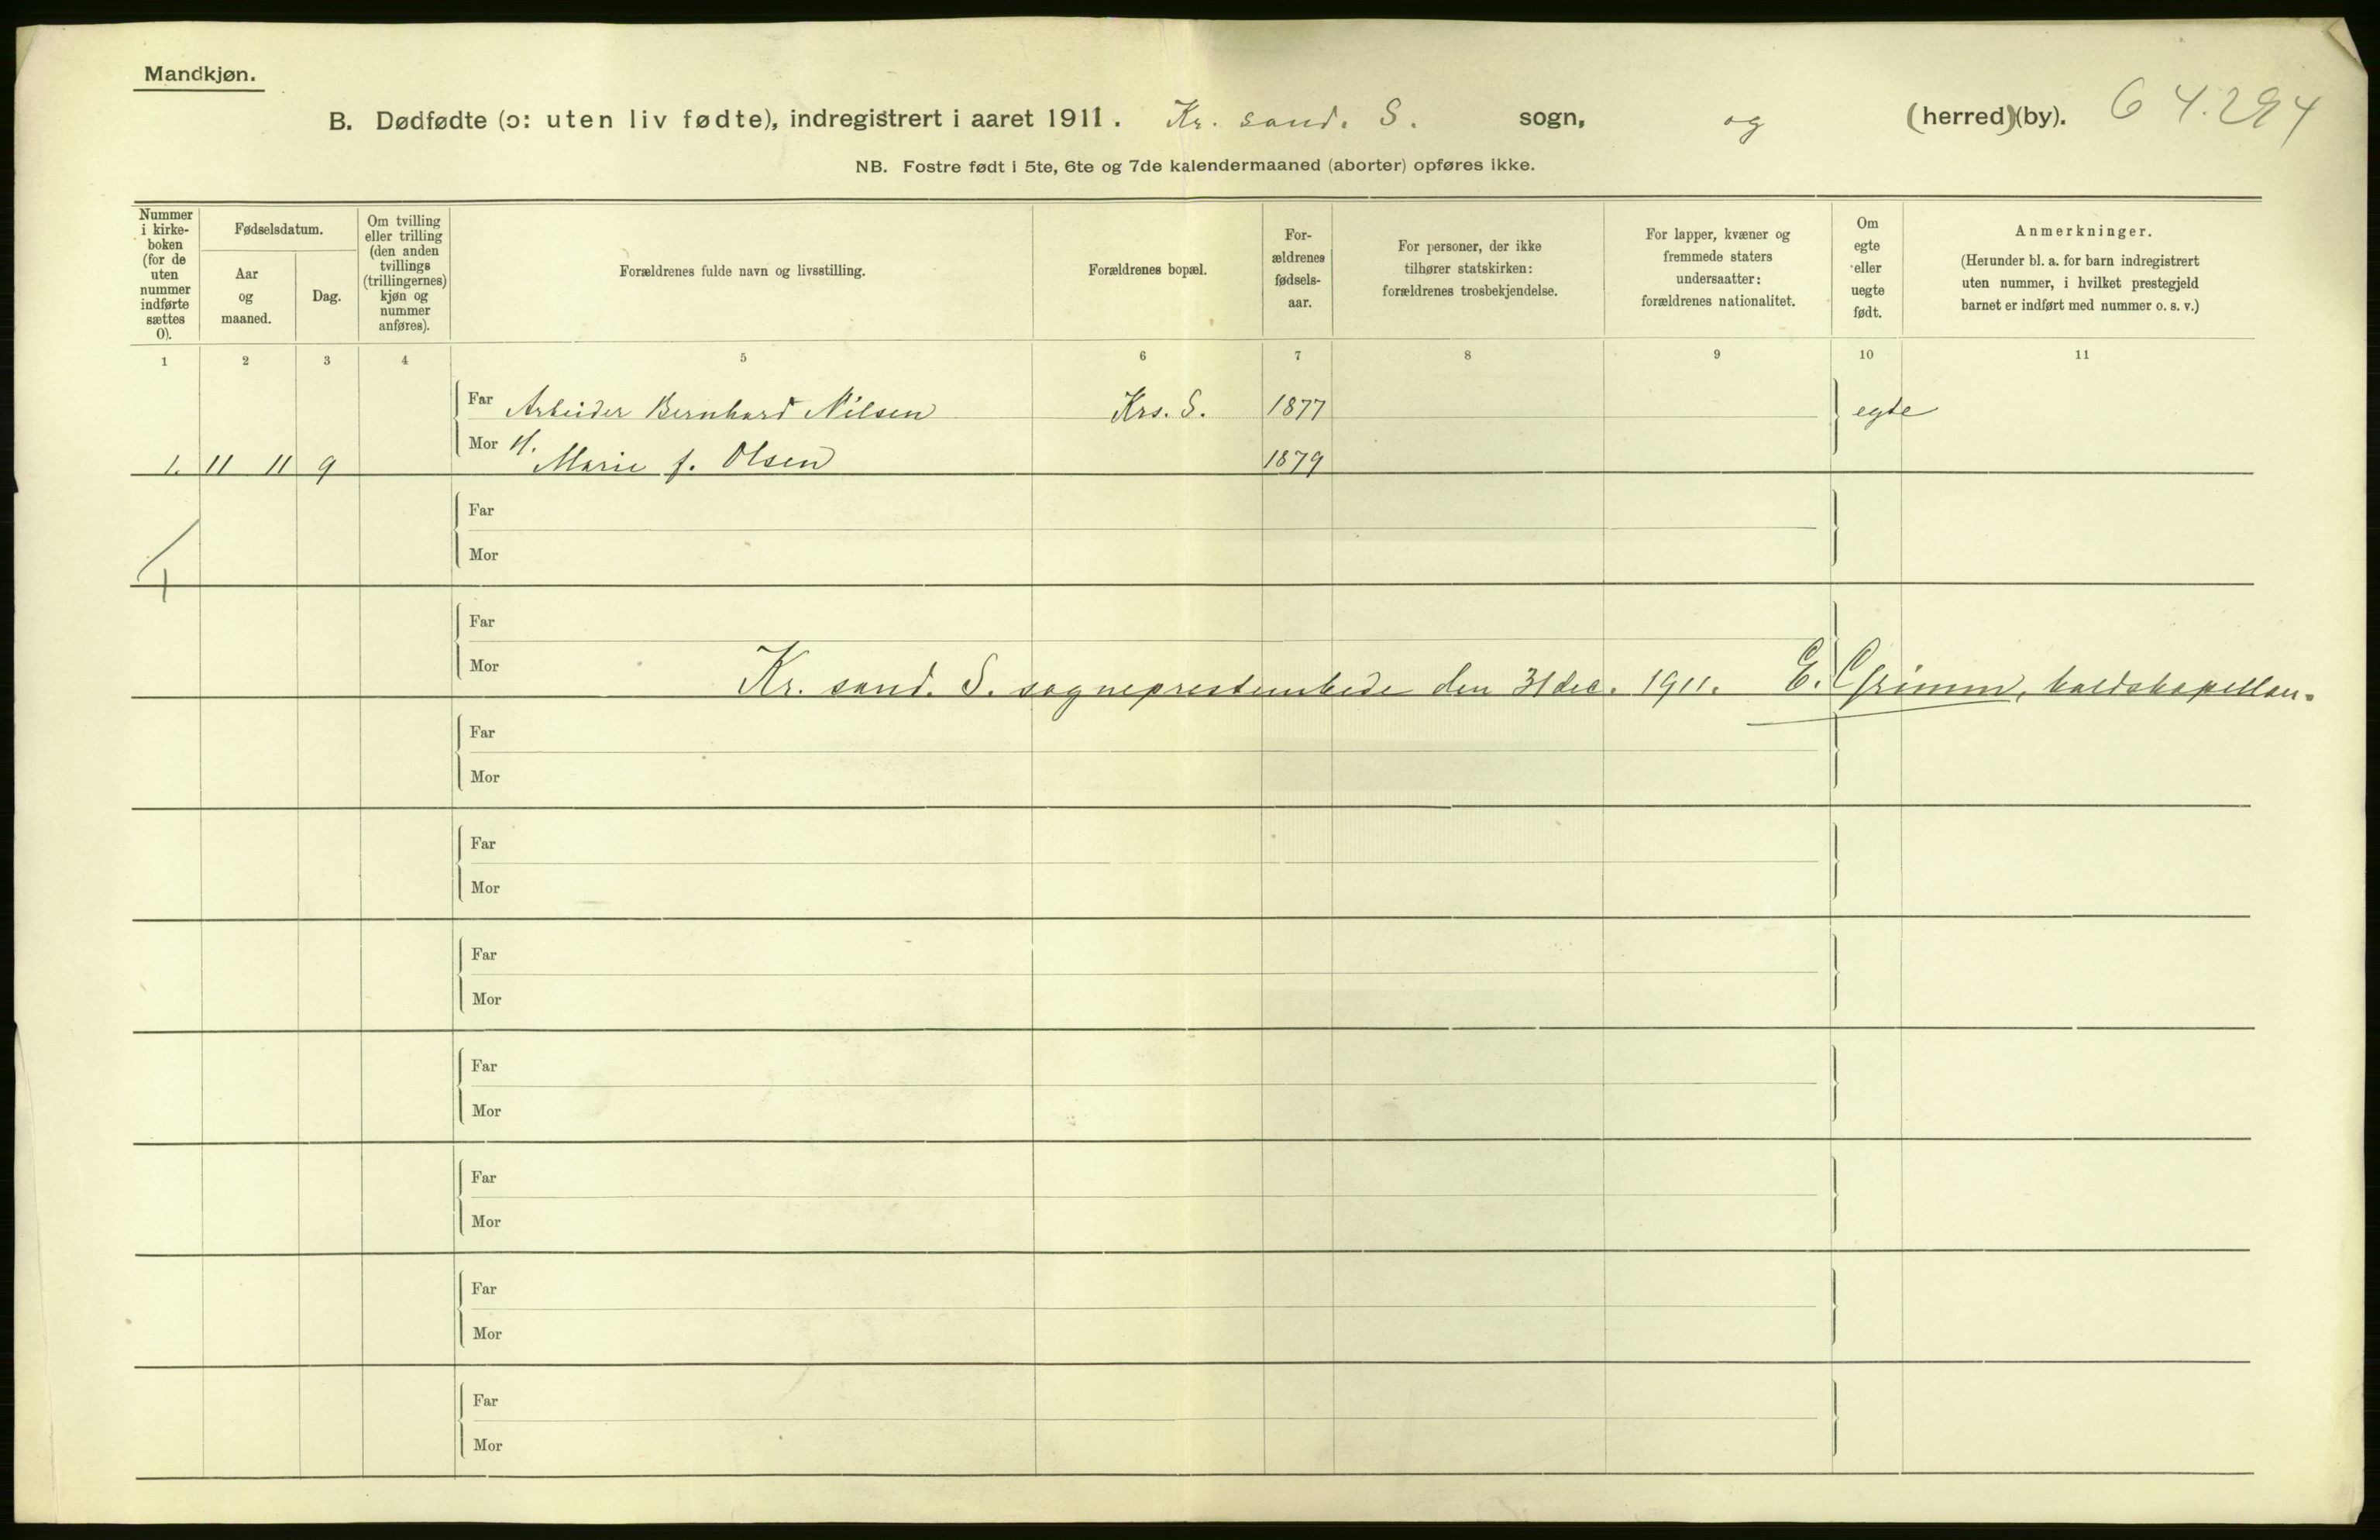 Mandkjøn.
B. Dødfødte (ɔ: uten liv fødte), indregistrert i aaret 1911. Kr. sand. S. sogn, og (herred)(by). 64.294
NB. Fostre født i 5te, 6te og 7de kalendermaaned (aborter) opføres ikke.
Nummer
i kirke-
boken
(for de
uten
nummer
indførte
sættes
0).
Fødselsdatum.
Aar
og
maaned.
Dag.
Om tvilling
eller trilling
(den anden
tvillings
(trillingernes)
kjøn og
nummer
anføres).
Forældrenes fulde navn og livsstilling.
Forældrenes bopæl.
For-
ældrenes
fødsels-
aar.
For personer, der ikke
tilhører statskirken:
forældrenes trosbekjendelse.
For lapper, kvæner og
fremmede staters
undersaatter:
forældrenes nationalitet.
Om
egte
eller
uegte
født.
Anmerkninger.
(Herunder bl. a. for barn indregistrert
uten nummer, i hvilket prestegjeld
barnet er indført med nummer o. s. v.)
1 2 3 4 5 6 7 8 9 10 11
Far Arbeider Bernhard Nilsen Krs. S. 1877 egte
1. 11 11 9 Mor H. Marie f. Olsen 1879
Far
Mor
Far
Mor
Kr. sand. S. sogneprestembede den 31 dec. 1911. E. Grimm, kaldskapellan.
Far
Mor
Far
Mor
Far
Mor
Far
Mor
Far
Mor
Far
Mor
Far
Mor